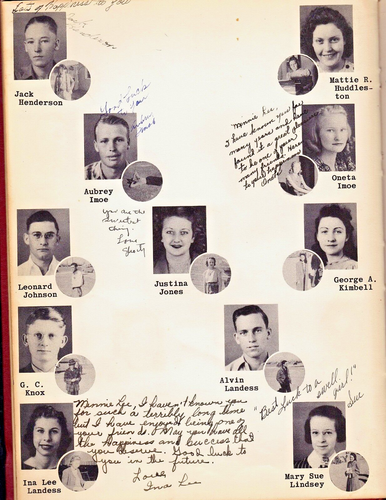 Lots of happiness to you
Jack
Henderson
Mattie R.
Huddles-
ton
Good luck
Minnie Lee,
I have known you for
many years and have
found it a great pleasure
to be one
Oneta
Aubrey
Imoe
Oneta
Imoe
You are the
sweetest
thing.
Love
Shorty
Leonard
Johnson
Justina
Jones
George A.
Kimbell
G. C.
Knox
Alvin
Landess
"Best luck to a swell
girl!"
Sue
Minnie Lee, I haven't known you
for such a terribly long time
but I have enjoyed being one of
your friends. May you have all
the Happiness and success that
you deserve. Good luck to
you in the future.
Love,
Ina Lee
Ina Lee
Landess
Mary Sue
Lindsey